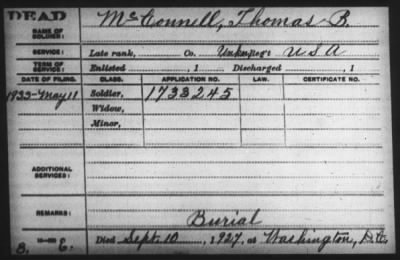 DEAD
NAME OF SOLDIER: McConnell, Thomas B.
SERVICE: Late rank, Co. Reg't U S A
TERM OF SERVICE: Enlisted , 1 Discharged , 1
DATE OF FILING. CLASS. APPLICATION NO. LAW. CERTIFICATE NO.
1933-May 11 Soldier, 1733245
Widow,
Minor,
ADDITIONAL SERVICES:
REMARKS: Burial
Died Sept. 10, 1927, at Washington, D.C.